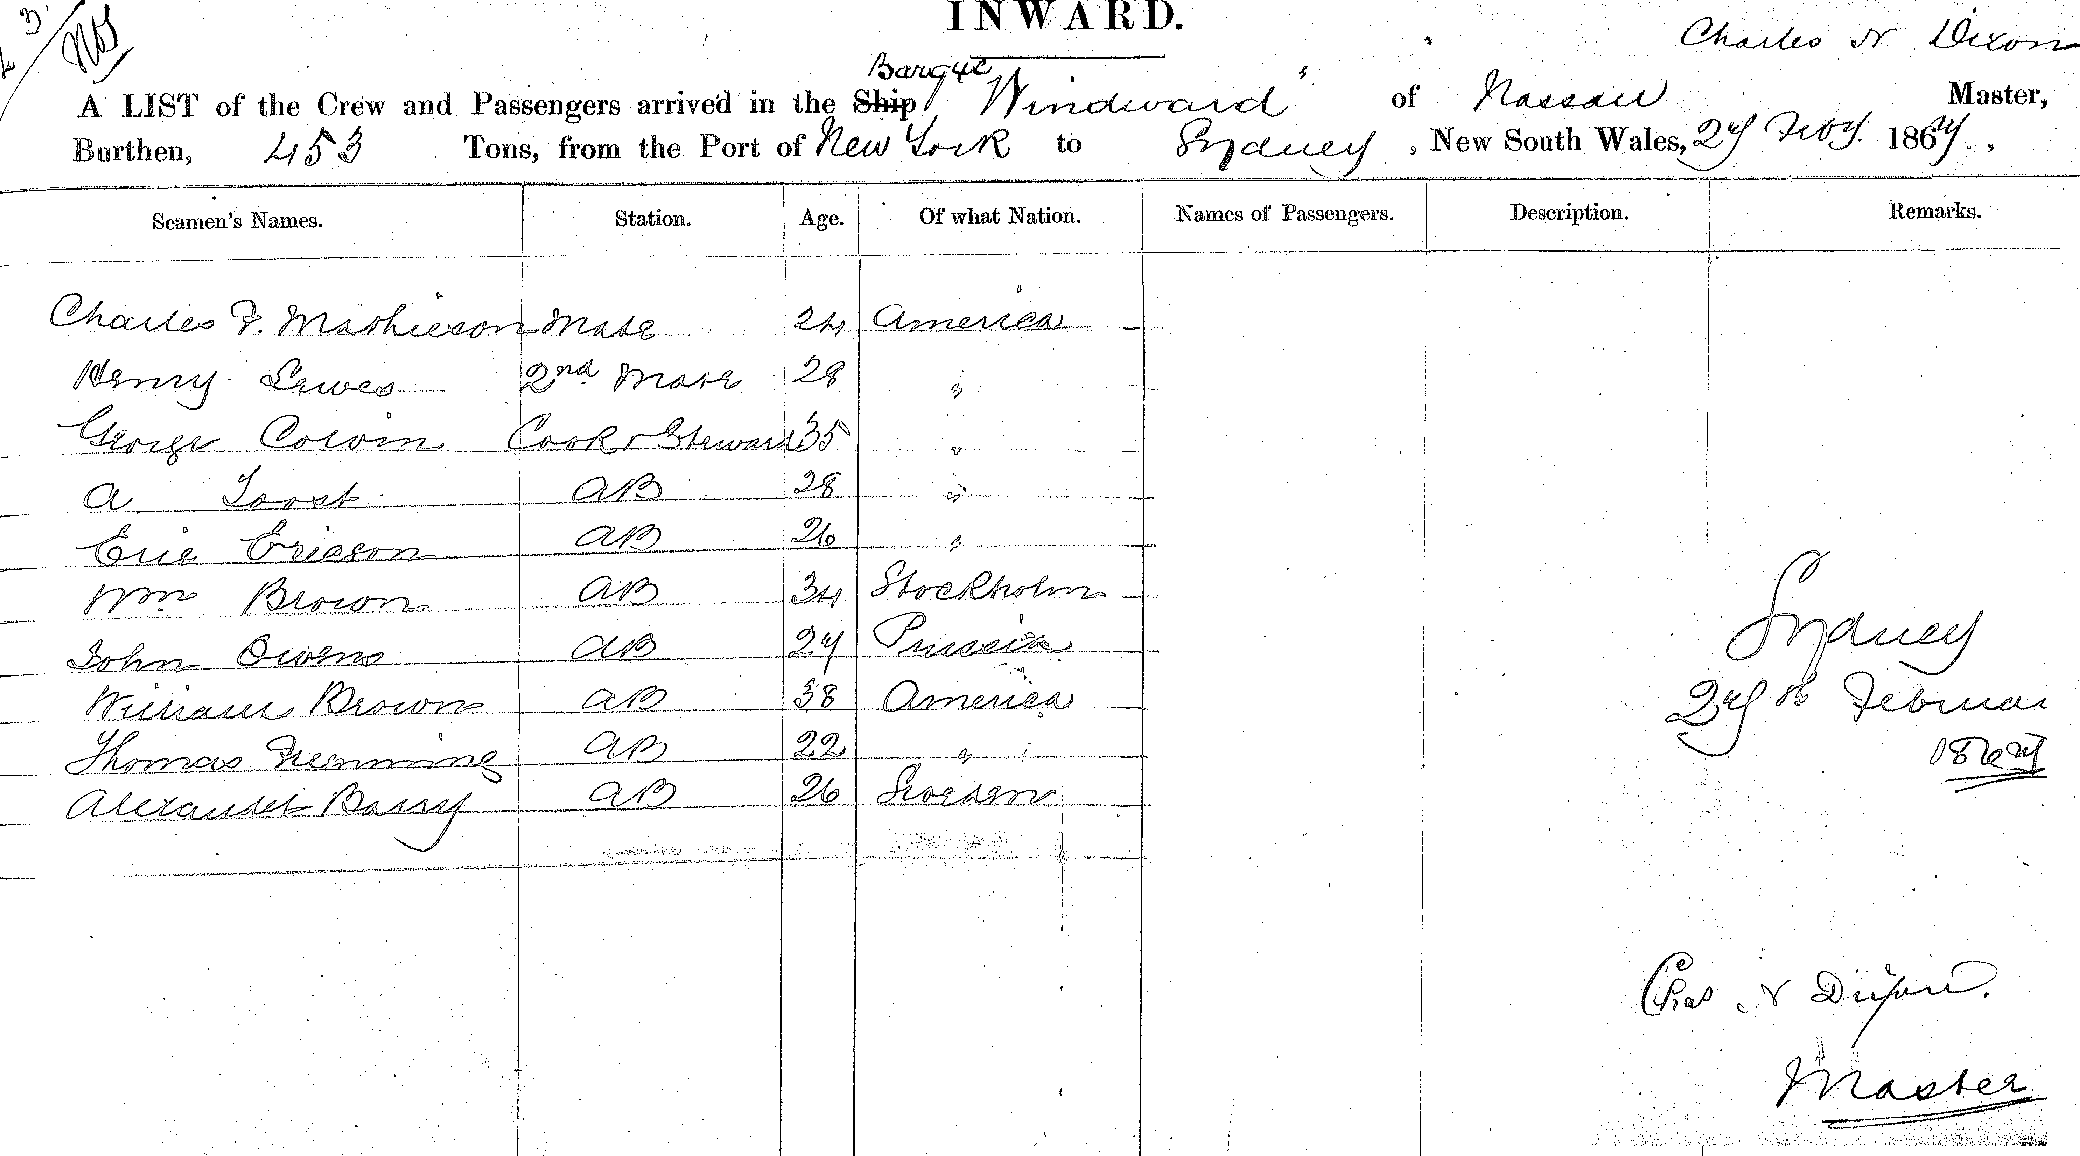 INWARD.
Charles N Dixon
Barque
A LIST of the Crew and Passengers arrived in the Ship "Windward" of Nassau Master,
Burthen, 453 Tons, from the Port of New York to Sydney, New South Wales, 27 Feby. 1867.
Seamen's Names. Station. Age. Of what Nation. Names of Passengers. Description. Remarks.
Charles F. Mathieson Mate 24 America
Henry Lewes 2nd Mate 28 "
George Colvin Cook & Steward 35 "
A Toost AB 28 "
Eric Ericson AB 26 "
Wm Brown AB 34 Stockholm
John Owens AB 27 Prussia
William Brown AB 38 America
Thomas Flemming AB 22 "
Alexander Barry AB 26 Sweden
Sydney
27th Februar
1867
Chas N Dixon.
Master